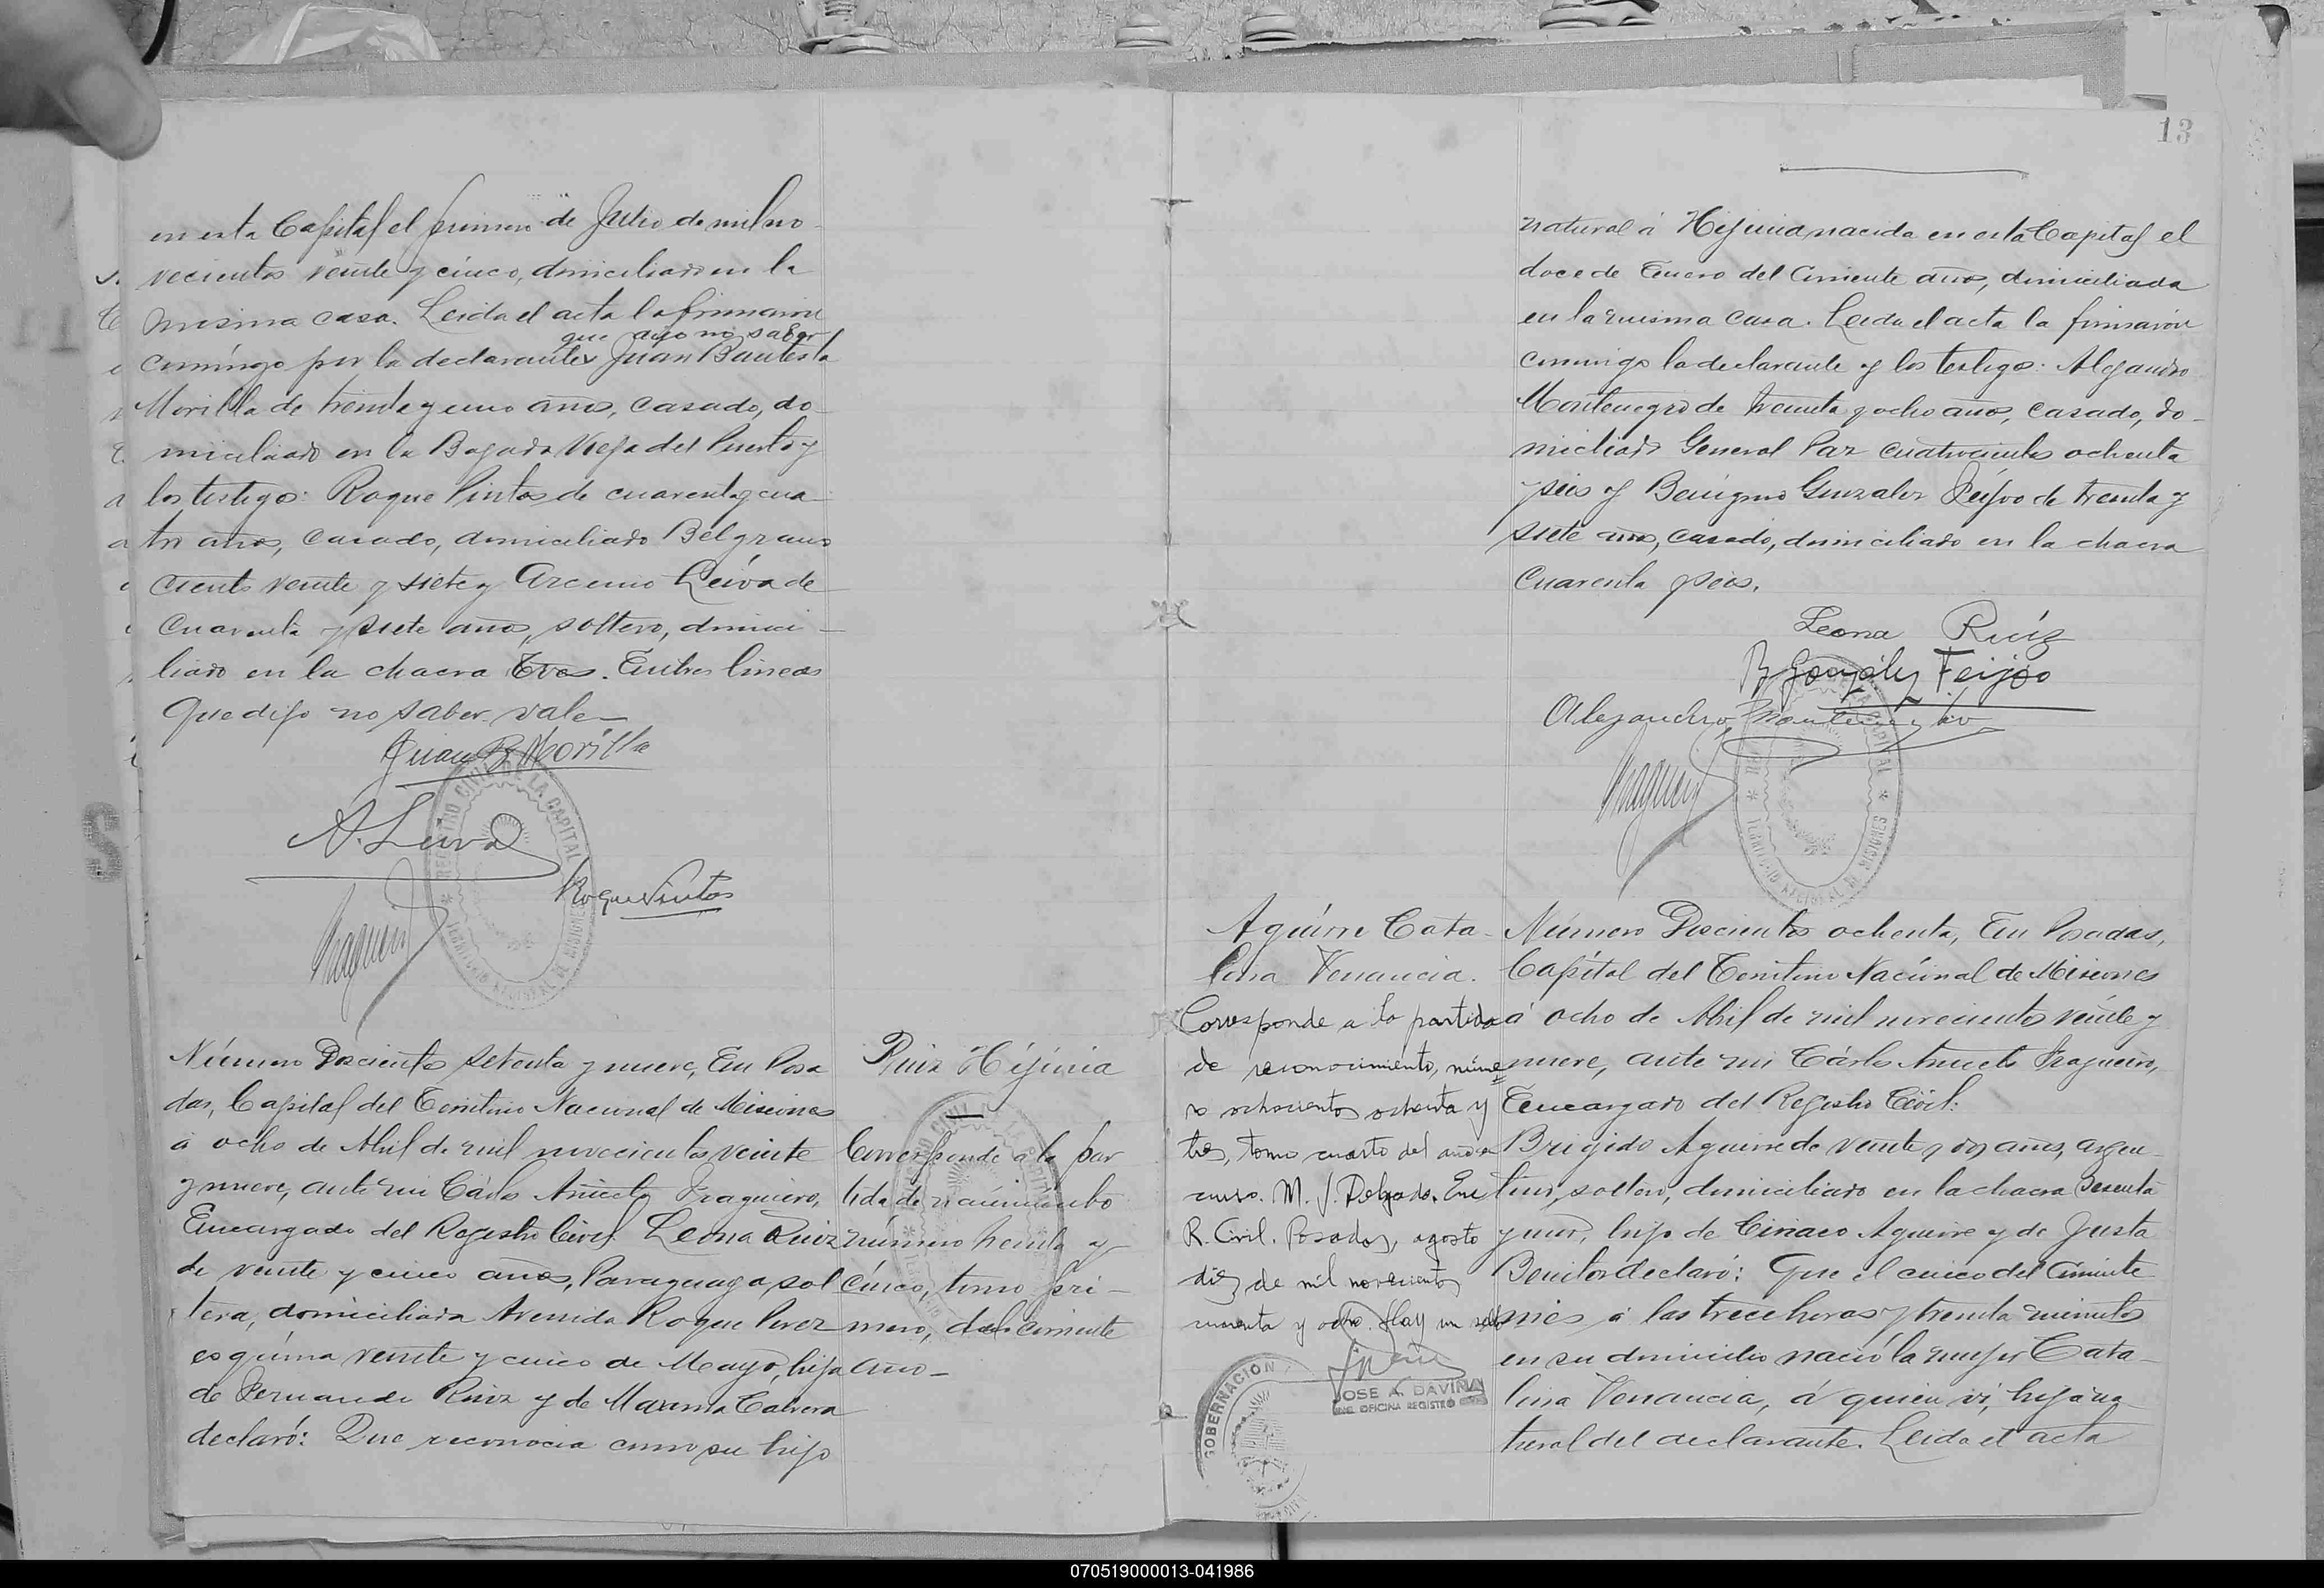 en esta Capital el primero de Julio de mil no-
vecientos veinte y cinco, domiciliado en la
misma casa. Leida el acta la firmaron
que dijo no saber
conmigo por la declarante Juan Bautista
Morilla de treinta y uno años, casado, do-
miciliado en la Bajada Vieja del Puerto y
los testigos: Roque Pintos de cuarenta y cua-
tro años, casado, domiciliado Belgrano
ciento veinte y siete y Arcenio Leiva de
cuarenta y siete años, soltero, domici-
liado en la chacra tres. Entre lineas
que dijo no saber. vale—
Juan B Morilla
A. Leiva
Roque Pintos
REGISTRO CIVIL DE LA CAPITAL
TERRITORIO NACIONAL DE MISIONES
Número Doscientos setenta y nueve, En Posa
das, Capital del Territorio Nacional de Misiones
á ocho de Abril de mil novecientos veinte
y nueve, ante mi Cárlos Aniceto Fragueiro,
Encargado del Registro Civil. Leona Ruiz
de veinte y cinco años, Paraguaya, sol
tera, domiciliada Avenida Roque Perez
esquina veinte y cinco de Mayo, hija
de Fernando Ruiz y de Maxima Cabrera
declaró: Que reconocia como su hijo
Ruiz Hijinia
Corresponde a la par
tida de nacimiento
número treinta y
cinco, tomo pri-
mero, del corriente
año—
13
natural á Hijinia nacida en esta Capital el
doce de Enero del corriente año, domiciliada
en la misma casa. Leida el acta la firmaron
conmigo la declarante y los testigos: Alejandro
Montenegro de treinta y ocho años, casado, do-
miciliado General Paz cuatrocientos ochenta
y seis y Benigno Gonzalez Feijoo de treinta y
siete años, casado, domiciliado en la chacra
cuarenta y seis.
Leona Ruíz
B González Feijóo
Alejandro Montenegro
CAPITAL
TERRITORIO NACIONAL DE MISIONES
Aguirre Cata-
lina Venancia.
Corresponde a la partida
de reconocimiento, núme
ro ochocientos ochenta y
tres, tomo cuarto del año en
curso. M. J. Delgado. Enc
R. Civil. Posadas, agosto
diez de mil novecientos
cuarenta y ocho. Hay un sello
GOBERNACION
JOSE A. DAVIÑA
OFICINA REGISTRO
Número Doscientos ochenta, En Posadas,
Capital del Territorio Nacional de Misiones
á ocho de Abril de mil novecientos veinte y
nueve, ante mi Cárlos Aniceto Fragueiro,
Encargado del Registro Civil:
Brigido Aguirre de veinte y dos años, argen-
tino, soltero, domiciliado en la chacra sesenta
y uno, hijo de Ciriaco Aguirre y de Justa
Benitez declaró: Que el cinco del corriente
mes á las trece horas y treinta minutos
en su domicilio nació la mujer Cata-
lina Venancia, á quien ví, hija na
tural del declarante. Leida el acta
070519000013-041986